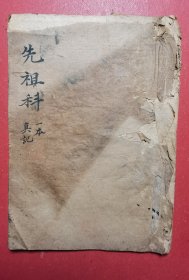 先祖科
一本
真記